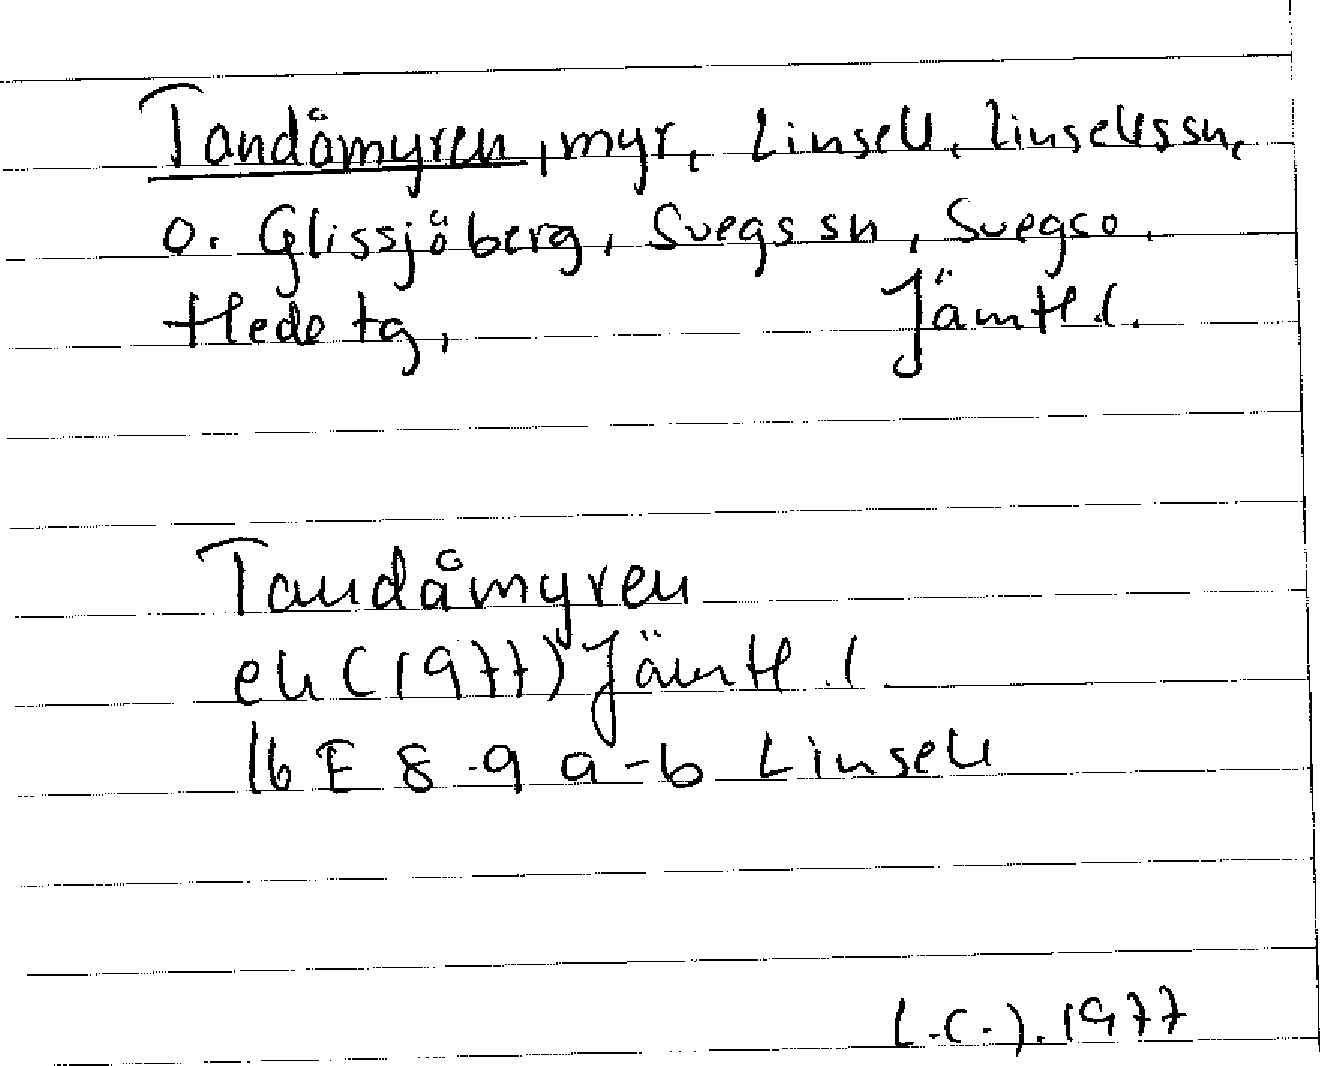 Tandåmyren, myr, Linsell, Linsells sn,
o. Glissjöberg, Svegs sn, Svegs o.
Hede tg, Jämtl. l.
Tandåmyren
ek (1977) Jämtl. l
16 E 8-9 a-b Linsell
L.C.J. 1977